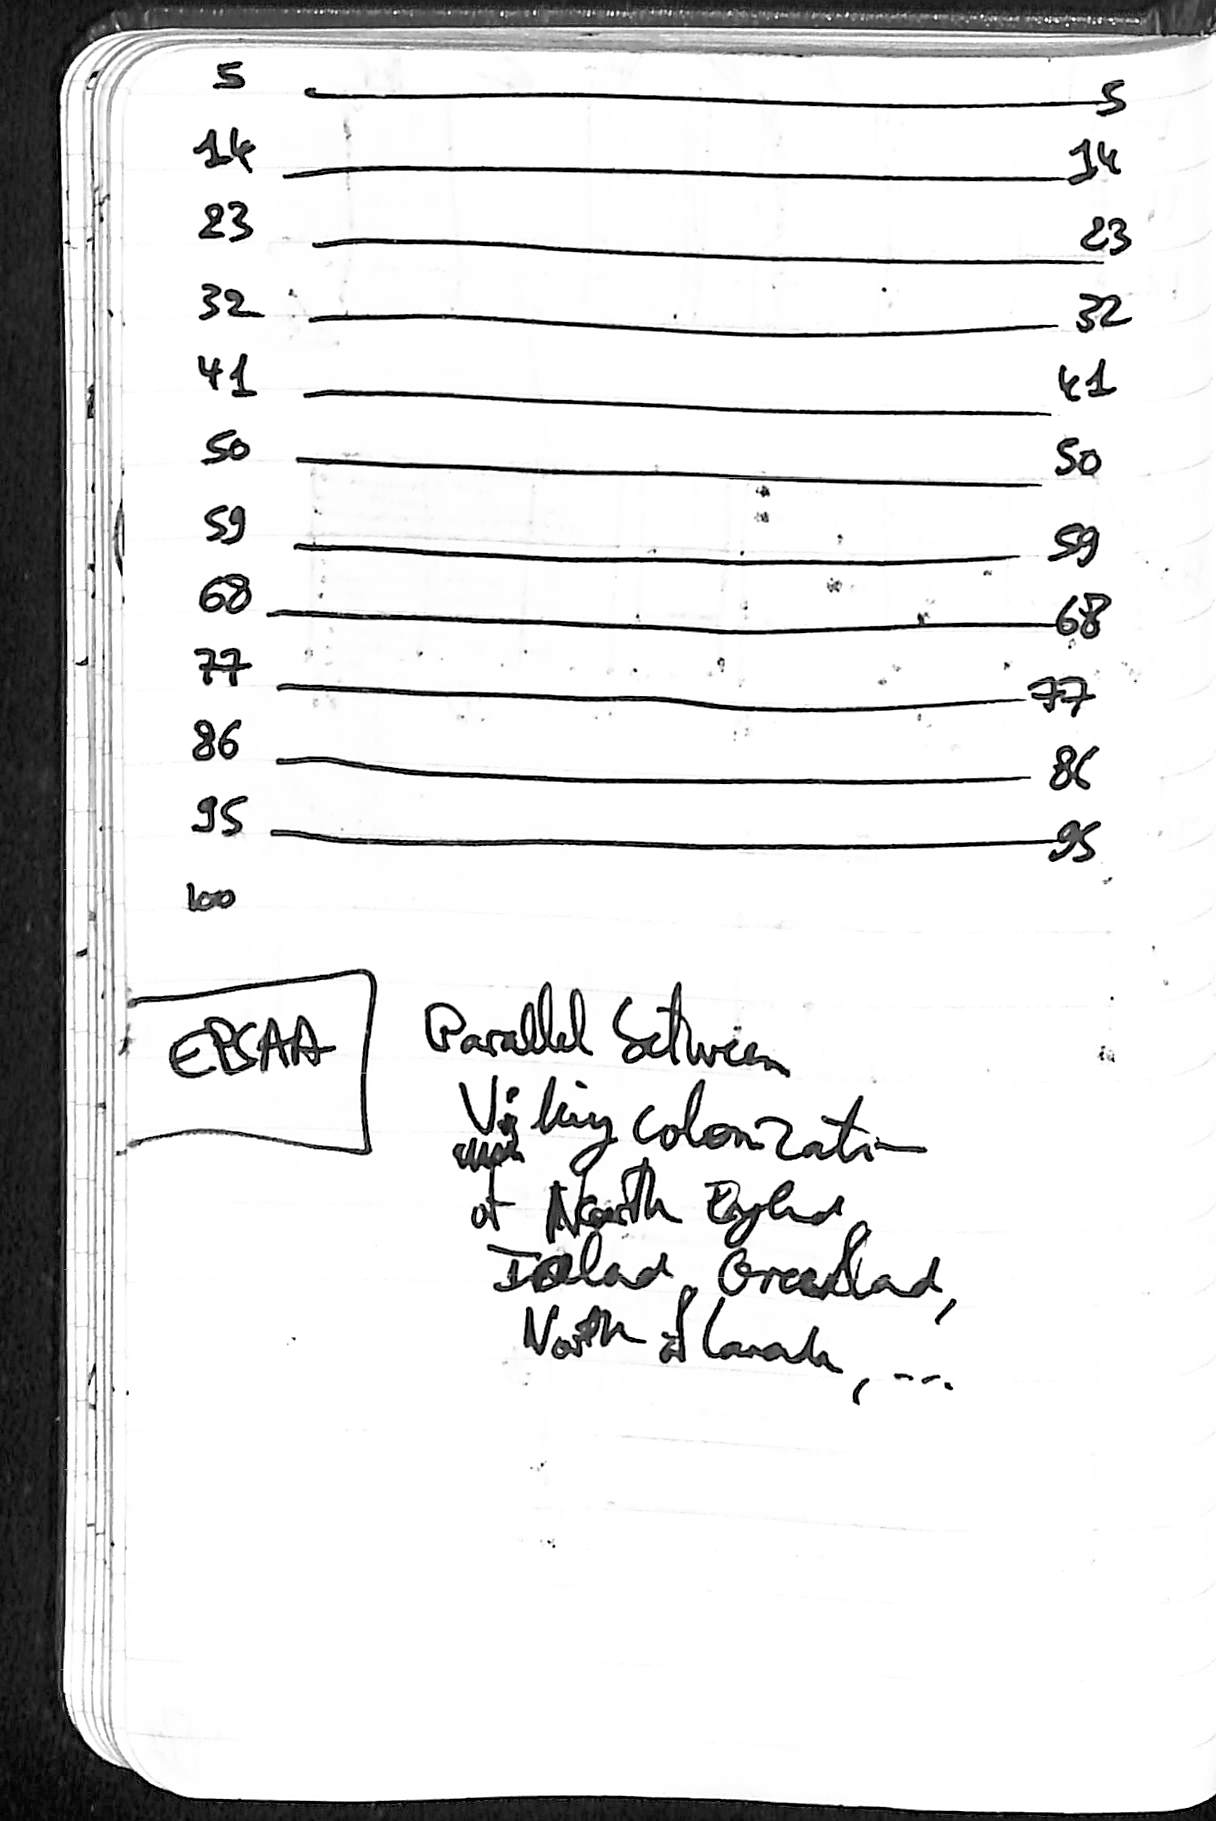 5 5
14 14
23 23
32 32
41 41
50 50
59 59
68 68
77 77
86 86
95 95
100
EBSAA
Parallel between
Viking colonization
of North England,
Iceland, Greenland,
North of Canada, ...